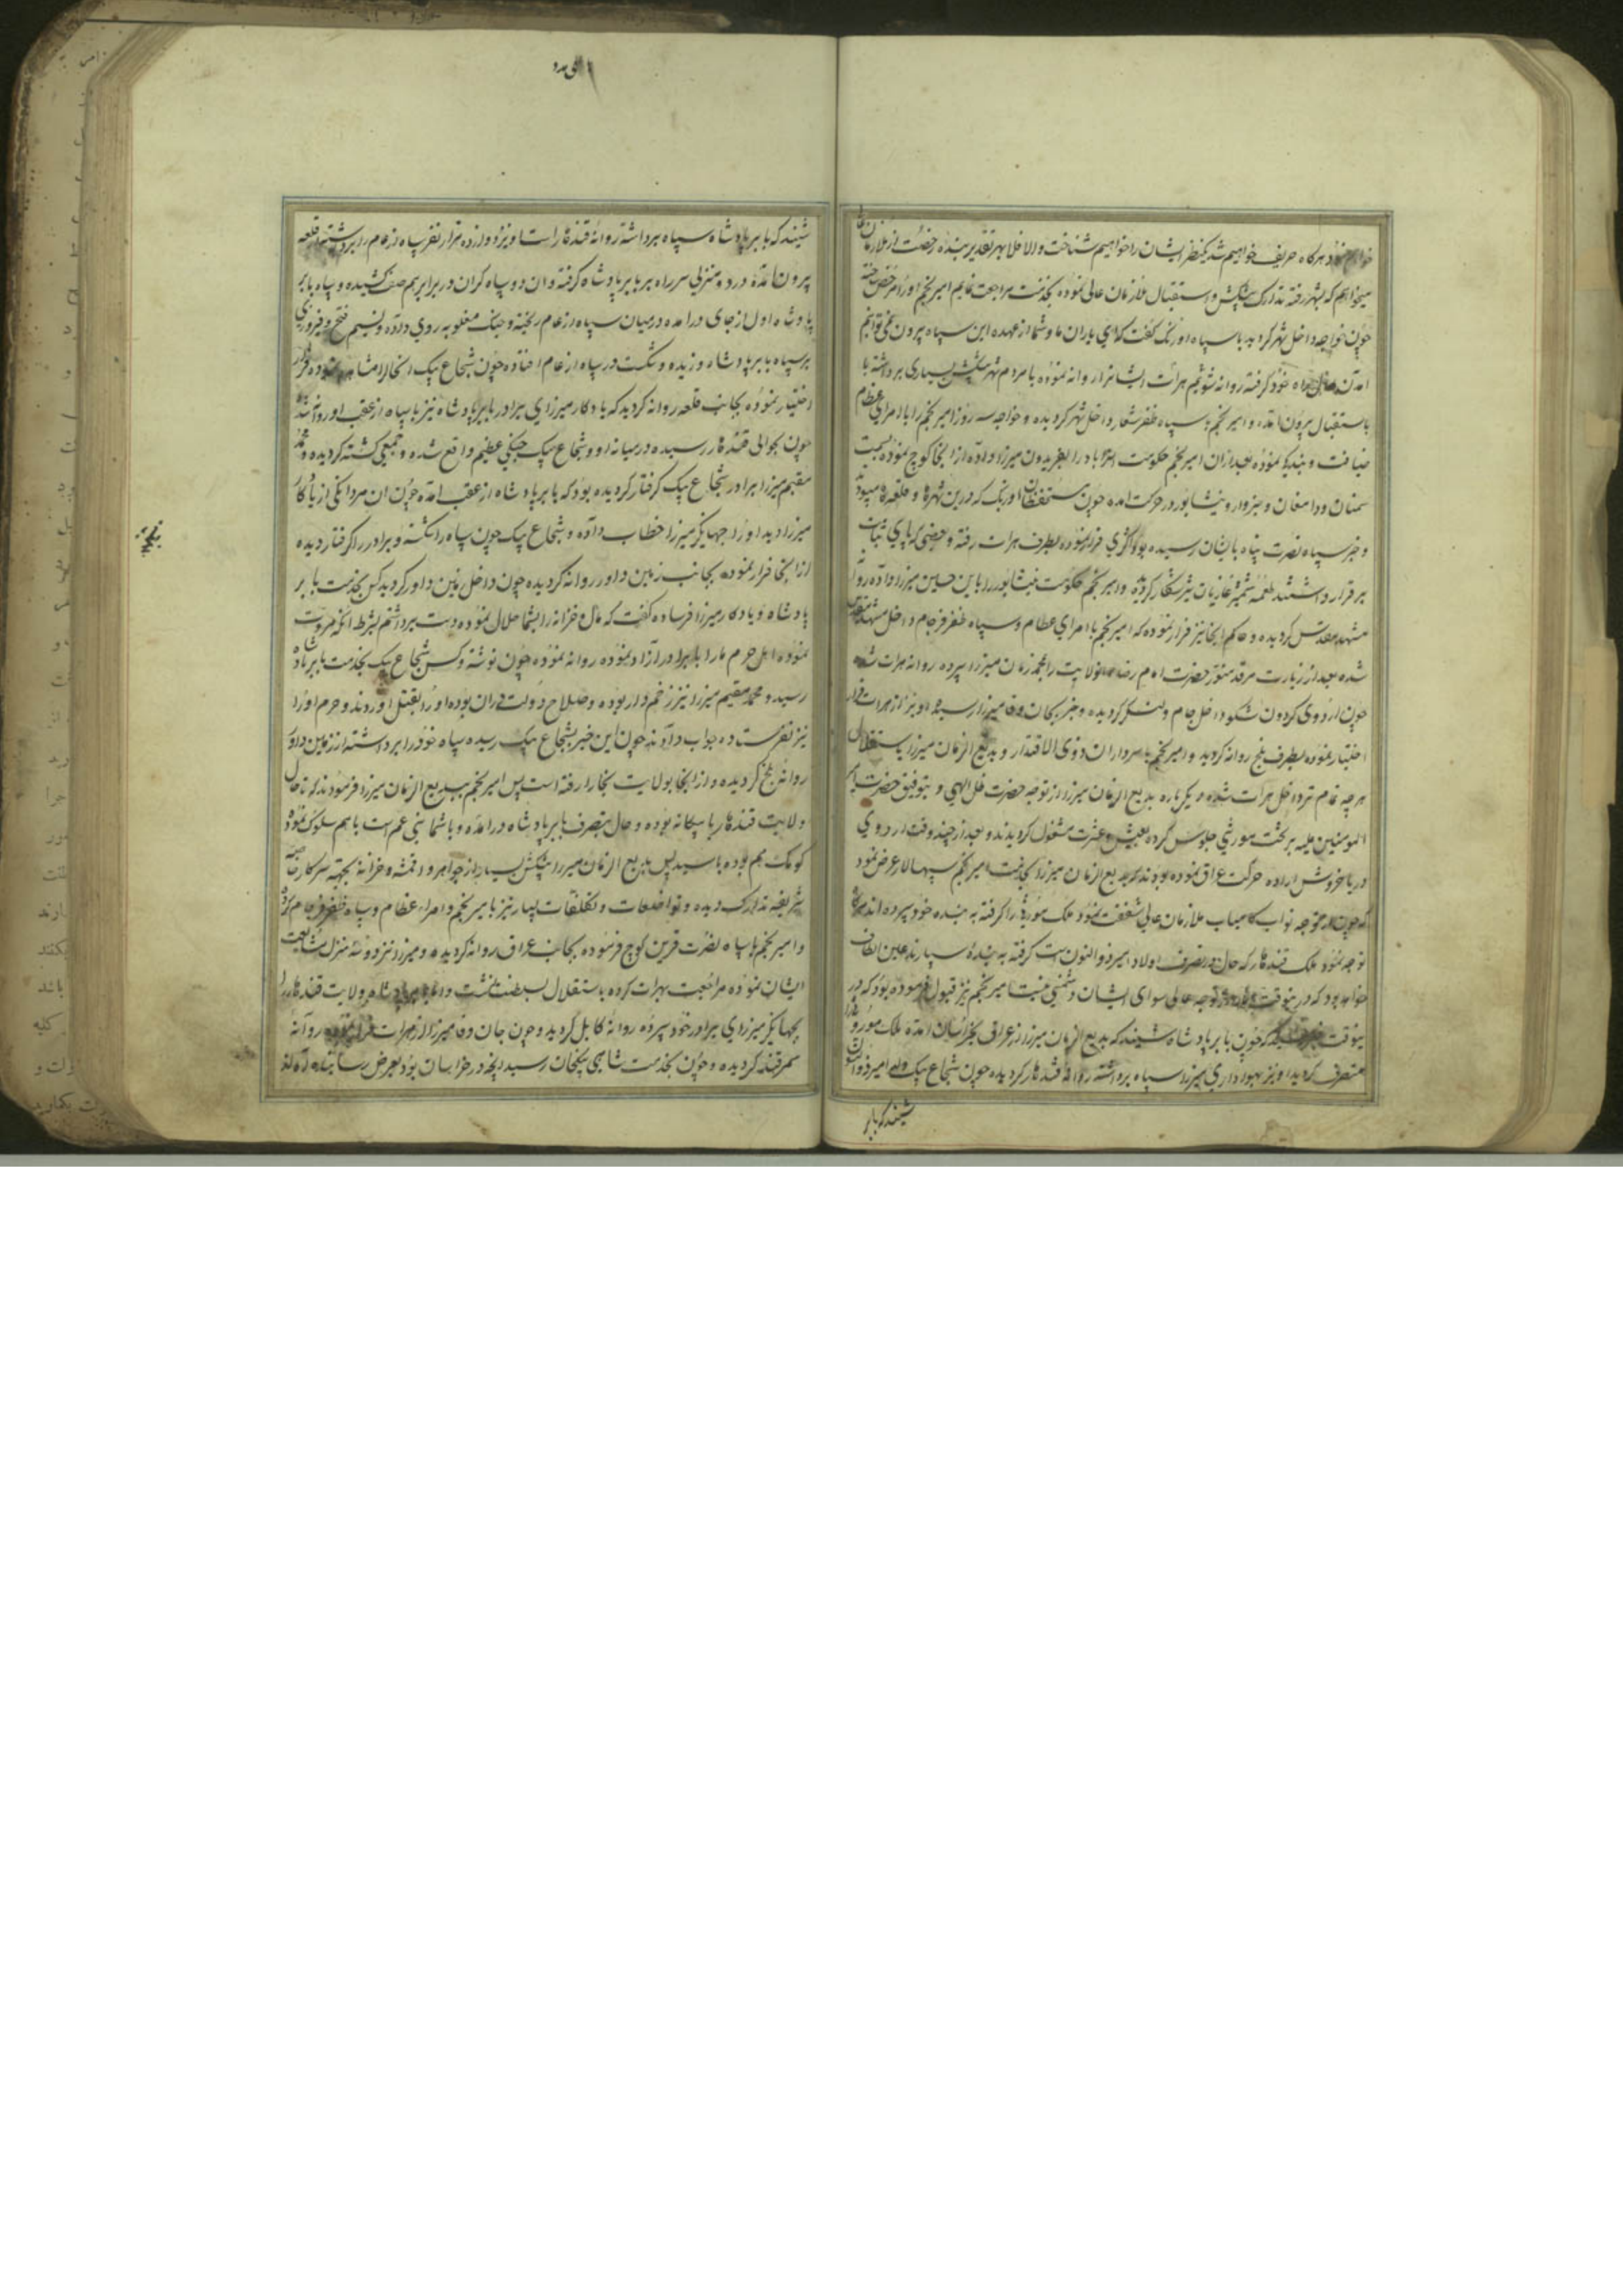 خواهم نمود هرکاه حریف خواهیم شد یکنظر ایشان را خواهیم شناخت والا فلا بهر تقدیر بنده رخصت از ملازمان عالی
میخواهم که بشهر رفته تدارک پیشکش و استقبال ملازمان عالی نموده بخدمت مراجعت نمایم امیر نجم اورا مرخص ساخته
چون خواجه داخل شهر کردید با سپاه اوزبک کفت که ای یاران ما و شما از عهده این سپاه بیرون نمی توانیم
امدن راه خود کرفته روانه شویم هرات ایشانرا روانه نموده با مردم شهر پیشکش بسیاری برداشته با
باستقبال بیرون امده و امیر نجم با سپاه ظفر شعار داخل شهر کردیده و خواجه سه روز امیر نجم را با امرای عظام
ضیافت و بندکی نموده بعد از ان امیر نجم حکومت استراباد را بفریدون میرزا داده از انجا کوچ نموده بسمت
سمنان و دامغان و سبزوار و نیشابور در حرکت امده چون مستحفظان اوزبک که درین شهرها و قلعه ها میبودند
و خبر سپاه نصرت پناه بایشان رسیده بود اکثری فرار نموده بطرف هرات رفته و بعضی که پای ثبات
برقرار داشتند طعمه شمشیر غازیان شیرشکار کردیده و امیر نجم حکومت نیشابور را باین حسین میرزا داده روانه
مشهد مقدس کردیده و حاکم انجا نیز فرار نموده که امیر نجم با امرای عظام و سپاه ظفر فرجام داخل مشهد مقدس
شده بعد از زیارت مرقد منور حضرت امام رضا انولایت را بمحمد زمان میرزا سپرده روانه هرات شده
چون اردوی کردون شکوه داخل جام ولنکر کردیده و خبر بجان وفا میرزا رسیده او نیز از هرات فرار
اختیار نموده بطرف بلخ روانه کردید و امیر نجم با سرداران ذوی الاقتدار و بدیع الزمان میرزا باستقلال
هرچه تمام تر داخل هرات شده و یکباره بدیع الزمان میرزا از توجه حضرت ظل الهی و بتوفیق حضرت امیر
المومنین علیه بر تخت موروثی جلوس کرده بعیش و عشرت مشغول کردیدند و بعد از چند وقت اردوی
دریا خروش اراده حرکت عراق نموده بودند که بدیع الزمان میرزا بخدمت امیر نجم سپهسالار عرض نمود
که چون از توجه نواب کامیاب ملازمان عالی شفقت نمود ملک موروثی را کرفته به بنده خود سپرده اند هرکاه
توجه نمود ملک قندهار که حال در تصرف اولاد امیر ذوالنون است کرفته به بنده سپارند عین الطاف
خواهد بود که درینوقت توجه عالی سوای ایشان دشمنی نیست امیر نجم نیز قبول فرموده بود که در
ینوقت خبر رسید که چون بابر پادشاه شنید که بدیع الزمان میرزا از عراق بخراسان امده ملک موروث را
متصرف کردید او نیز بهواداری میرزا سپاه برداشته روانه قندهار کردیده چون شجاع بیک ولد امیر ذوالنون
شنید که بابر
شنید که بابر پادشاه سپاه برداشته روانه قندهار است او نیز دوازده هزار نفر سپاه ارغام را برداشته از قلعه
بیرون امده و در دو منزلی سر راه بر بابر پادشاه کرفته و ان دو سپاه کران در برابر هم صف کشیده و سپاه بابر
پادشاه اول از جای در امده در میان سپاه ارغام ریخته و جنک مغلوبه روی داده و نسیم فتح و فیروزی
بر سپاه بابر پادشاه وزیده و شکست در سپاه ارغام افتاده چون شجاع بیک انحال را مشاهده نموده فرار
اختیار نموده بجانب قلعه روانه کردید که یادکار میرزای برادر بابر پادشاه نیز با سپاه از عقب او روانه شده
چون بحوالی قندهار رسیده در میانه او و شجاع بیک جنکی عظیم واقع شده و جمعی کشته کردیده و محمد
مقیم میرزا برادر شجاع بیک کرفتار کردیده بود که بابر پادشاه از عقب امده چون ان مردانکی از یادکار
میرزا دید اورا جهانکیر میرزا خطاب داده و شجاع بیک چون سپاه را شکسته و برادر را کرفتار دیده
از انجا فرار نموده بجانب زمین داور روانه کردیده چون داخل زمین داور کردید کس بخدمت بابر
پادشاه و یادکار میرزا فرستاده کفت که مال و خزانه را بشما حلال نموده دست برداشتم بشرط انکه مروت
نموده اهل حرم مارا با برادر ازاد نموده روانه نموده چون نوشته و کس شجاع بیک بخدمت بابر پادشاه
رسید و محمد مقیم میرزا نیز زخم دار بوده و صلاح دولت در ان بوده اورا بقتل اوردند و حرم اورا
نیز نفرستاده جواب دادند چون این خبر بشجاع بیک رسیده سپاه خود را برداشته از زمین داور
روانه بلخ کردیده و از انجا بولایت بخارا رفته است پس امیر نجم ببدیع الزمان میرزا فرمودند که تا حال
ولایت قندهار با بیکانه بوده و حال بتصرف بابر پادشاه در امده و با شما بنی عم است باهم سلوک نموده
کومک هم بوده باسید پس بدیع الزمان میرزا پیشکش بسیار از جواهر و اقمشه و خزانه بجهته سرکار خاصه
شریفه تدارک دیده و تواضعات و تکلفات بسیار نیز بامیر نجم و امراء عظام و سپاه ظفر فرجام کرده
و امیر نجم با سپاه نصرت قرین کوچ فرموده بجانب عراق روانه کردیده و میرزا نیز دو سه منزل مشایعت
ایشان نموده مراجعت بهرات کرده باستقلال بسلطنت نشست و اما بابر پادشاه ولایت قندهار را
بجهانکیر میرزای برادر خود سپرده روانه کابل کردید و چون جان وفا میرزا از هرات فرار نموده روانه
سمرقند کردیده و چون بخدمت شاهی بیکخان رسید انچه در خراسان بود بعرض رسانیده